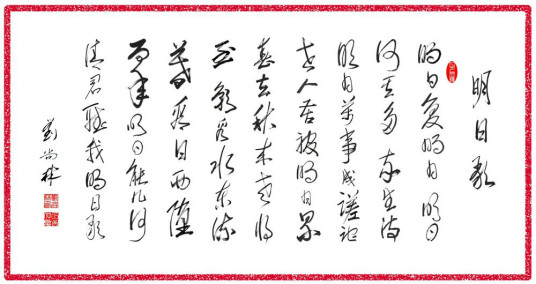 明日歌
明日复明日 明日
何其多 我生待
明日萬事成蹉跎
世人若被明日累
春去秋来老将
至 朝看水东流
暮看日西坠
百年明日能几何
请君聽我明日歌